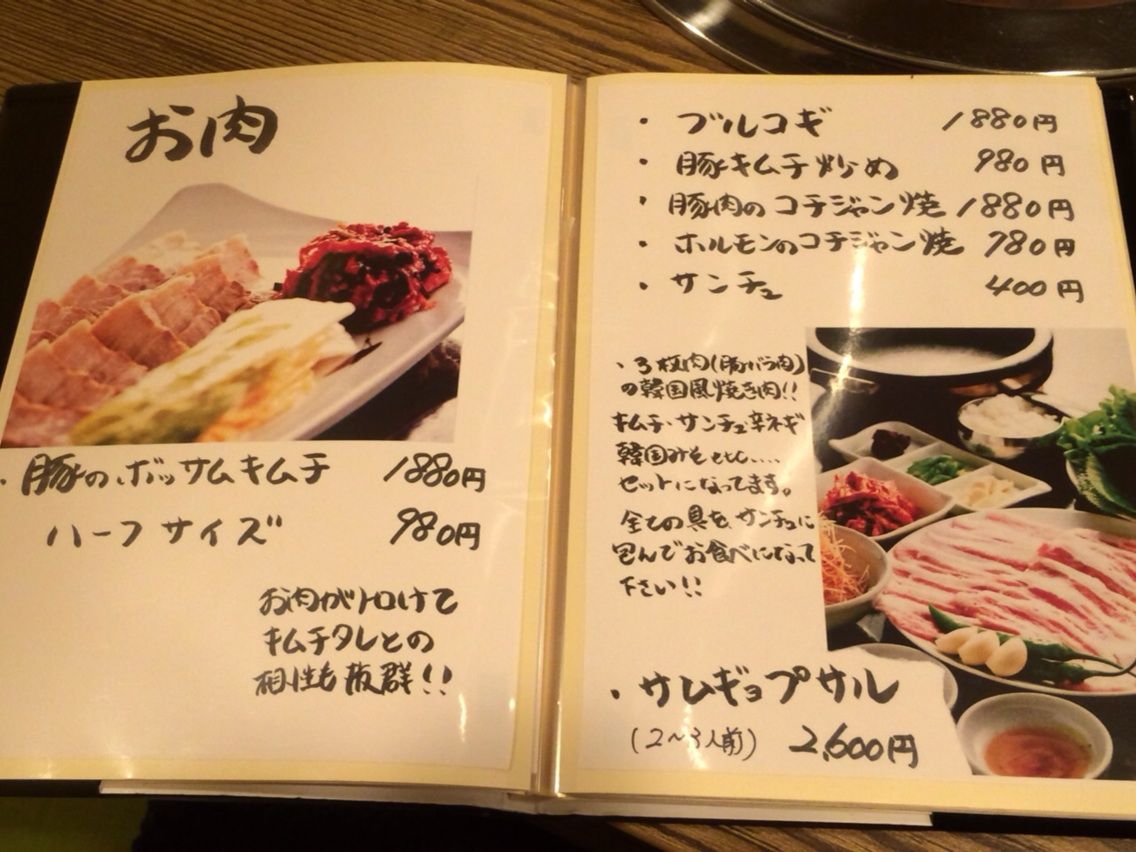 お肉
・豚のボッサムキムチ 1880円
ハーフサイズ 980円
お肉がトロけて
キムチタレとの
相性も抜群!!
・ブルコギ 1880円
・豚キムチ炒め 980円
・豚肉のコチジャン焼 1880円
・ホルモンのコチジャン焼 980円
・サンチュ 400円
・3枚肉(豚バラ肉)
の韓国風焼き肉!!
キムチ・サンチュ辛ネギ
韓国みそetc....
セットになってます。
全ての具を、サンチュに
包んでお食べになって
下さい!!
・サムギョプサル
(2〜3人前) 2,600円